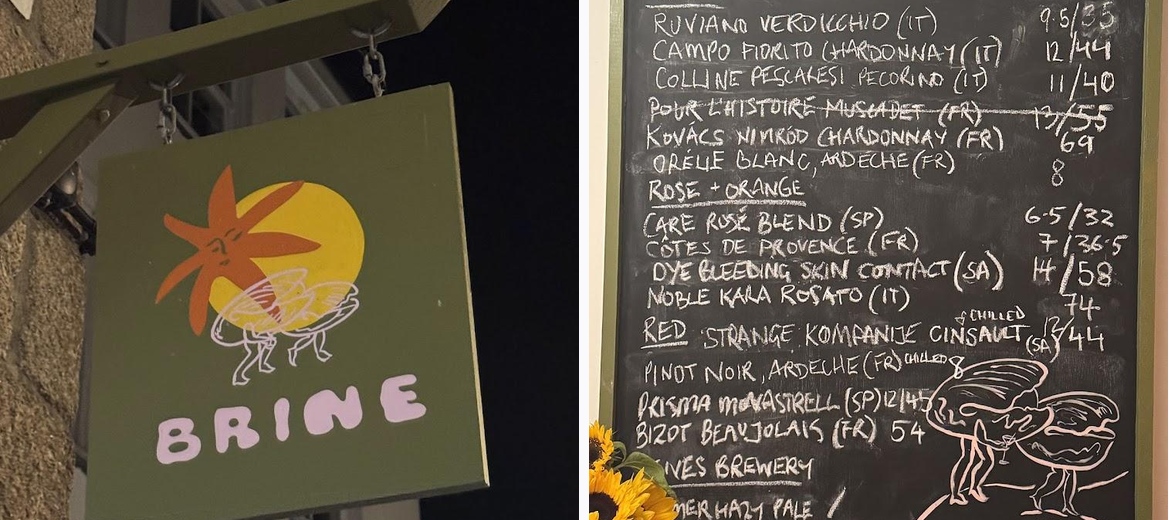 BRINE
RUVIANO VERDICCHIO (IT) 9.5/35
CAMPO FIORITO CHARDONNAY (IT) 12/44
COLLINE PESCALESI PECORINO (IT) 11/40
POUR L'HISTOIRE MUSCADET (FR) 13/55
KOVÁCS NIMRÓD CHARDONNAY (FR) 69
ORÉLIE BLANC, ARDECHE (FR) 8
ROSE + ORANGE
CARE ROSÉ BLEND (SP) 6.5/32
CÔTES DE PROVENCE (FR) 7/36.5
DYE BLEEDING SKIN CONTACT (SA) 14/58
NOBLE KARA ROSATO (IT) 74
RED STRANGE KOMPANIJE CINSAULT (SA) CHILLED 12/44
PINOT NOIR, ARDECHE (FR) CHILLED 8
PRISMA MONASTRELL (SP) 12/45
BIZOT BEAUJOLAIS (FR) 54
NES BREWERY
MER HAZY PALE /